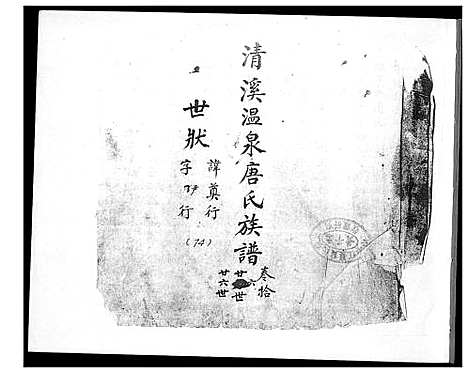 清溪温泉唐氏族譜
叁拾
廿
世
廿六世
世狀
諱奠行
字 行
(74)